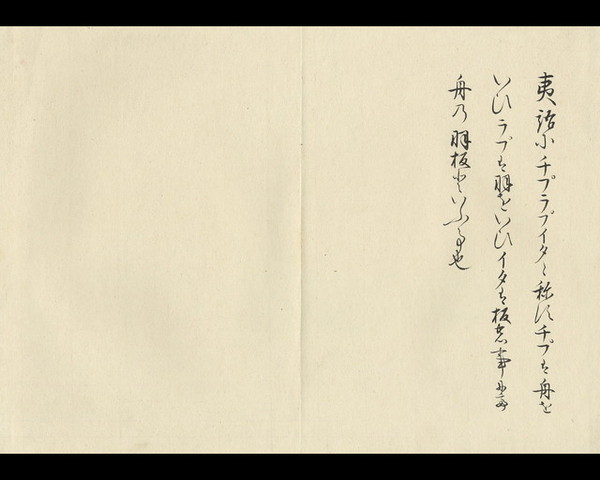 夷語にチプラプイタと称すチプは舟を
いひラプは羽をいひイタは板の事にて
舟の羽板といふ事也